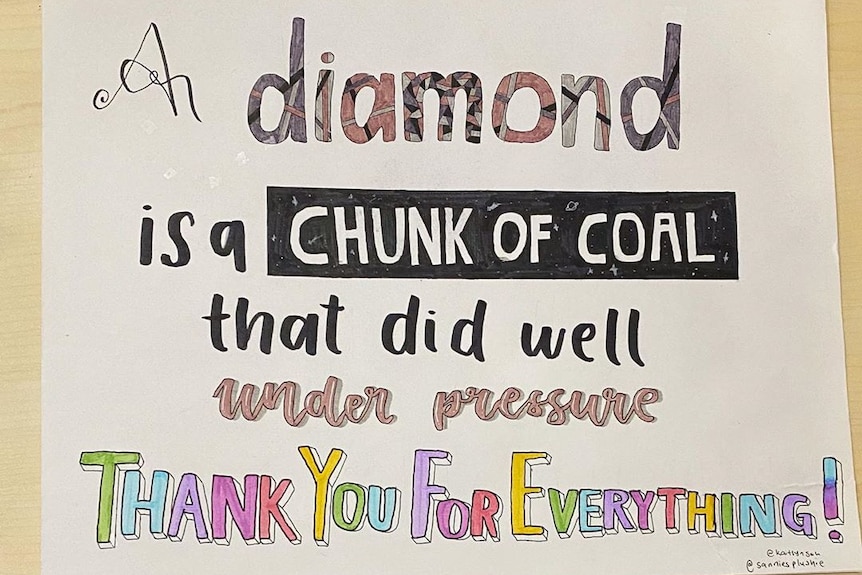 Ah diamond
is a CHUNK OF COAL
that did well
under pressure
THANK YOU FOR EVERYTHING!
@sanniesplushie